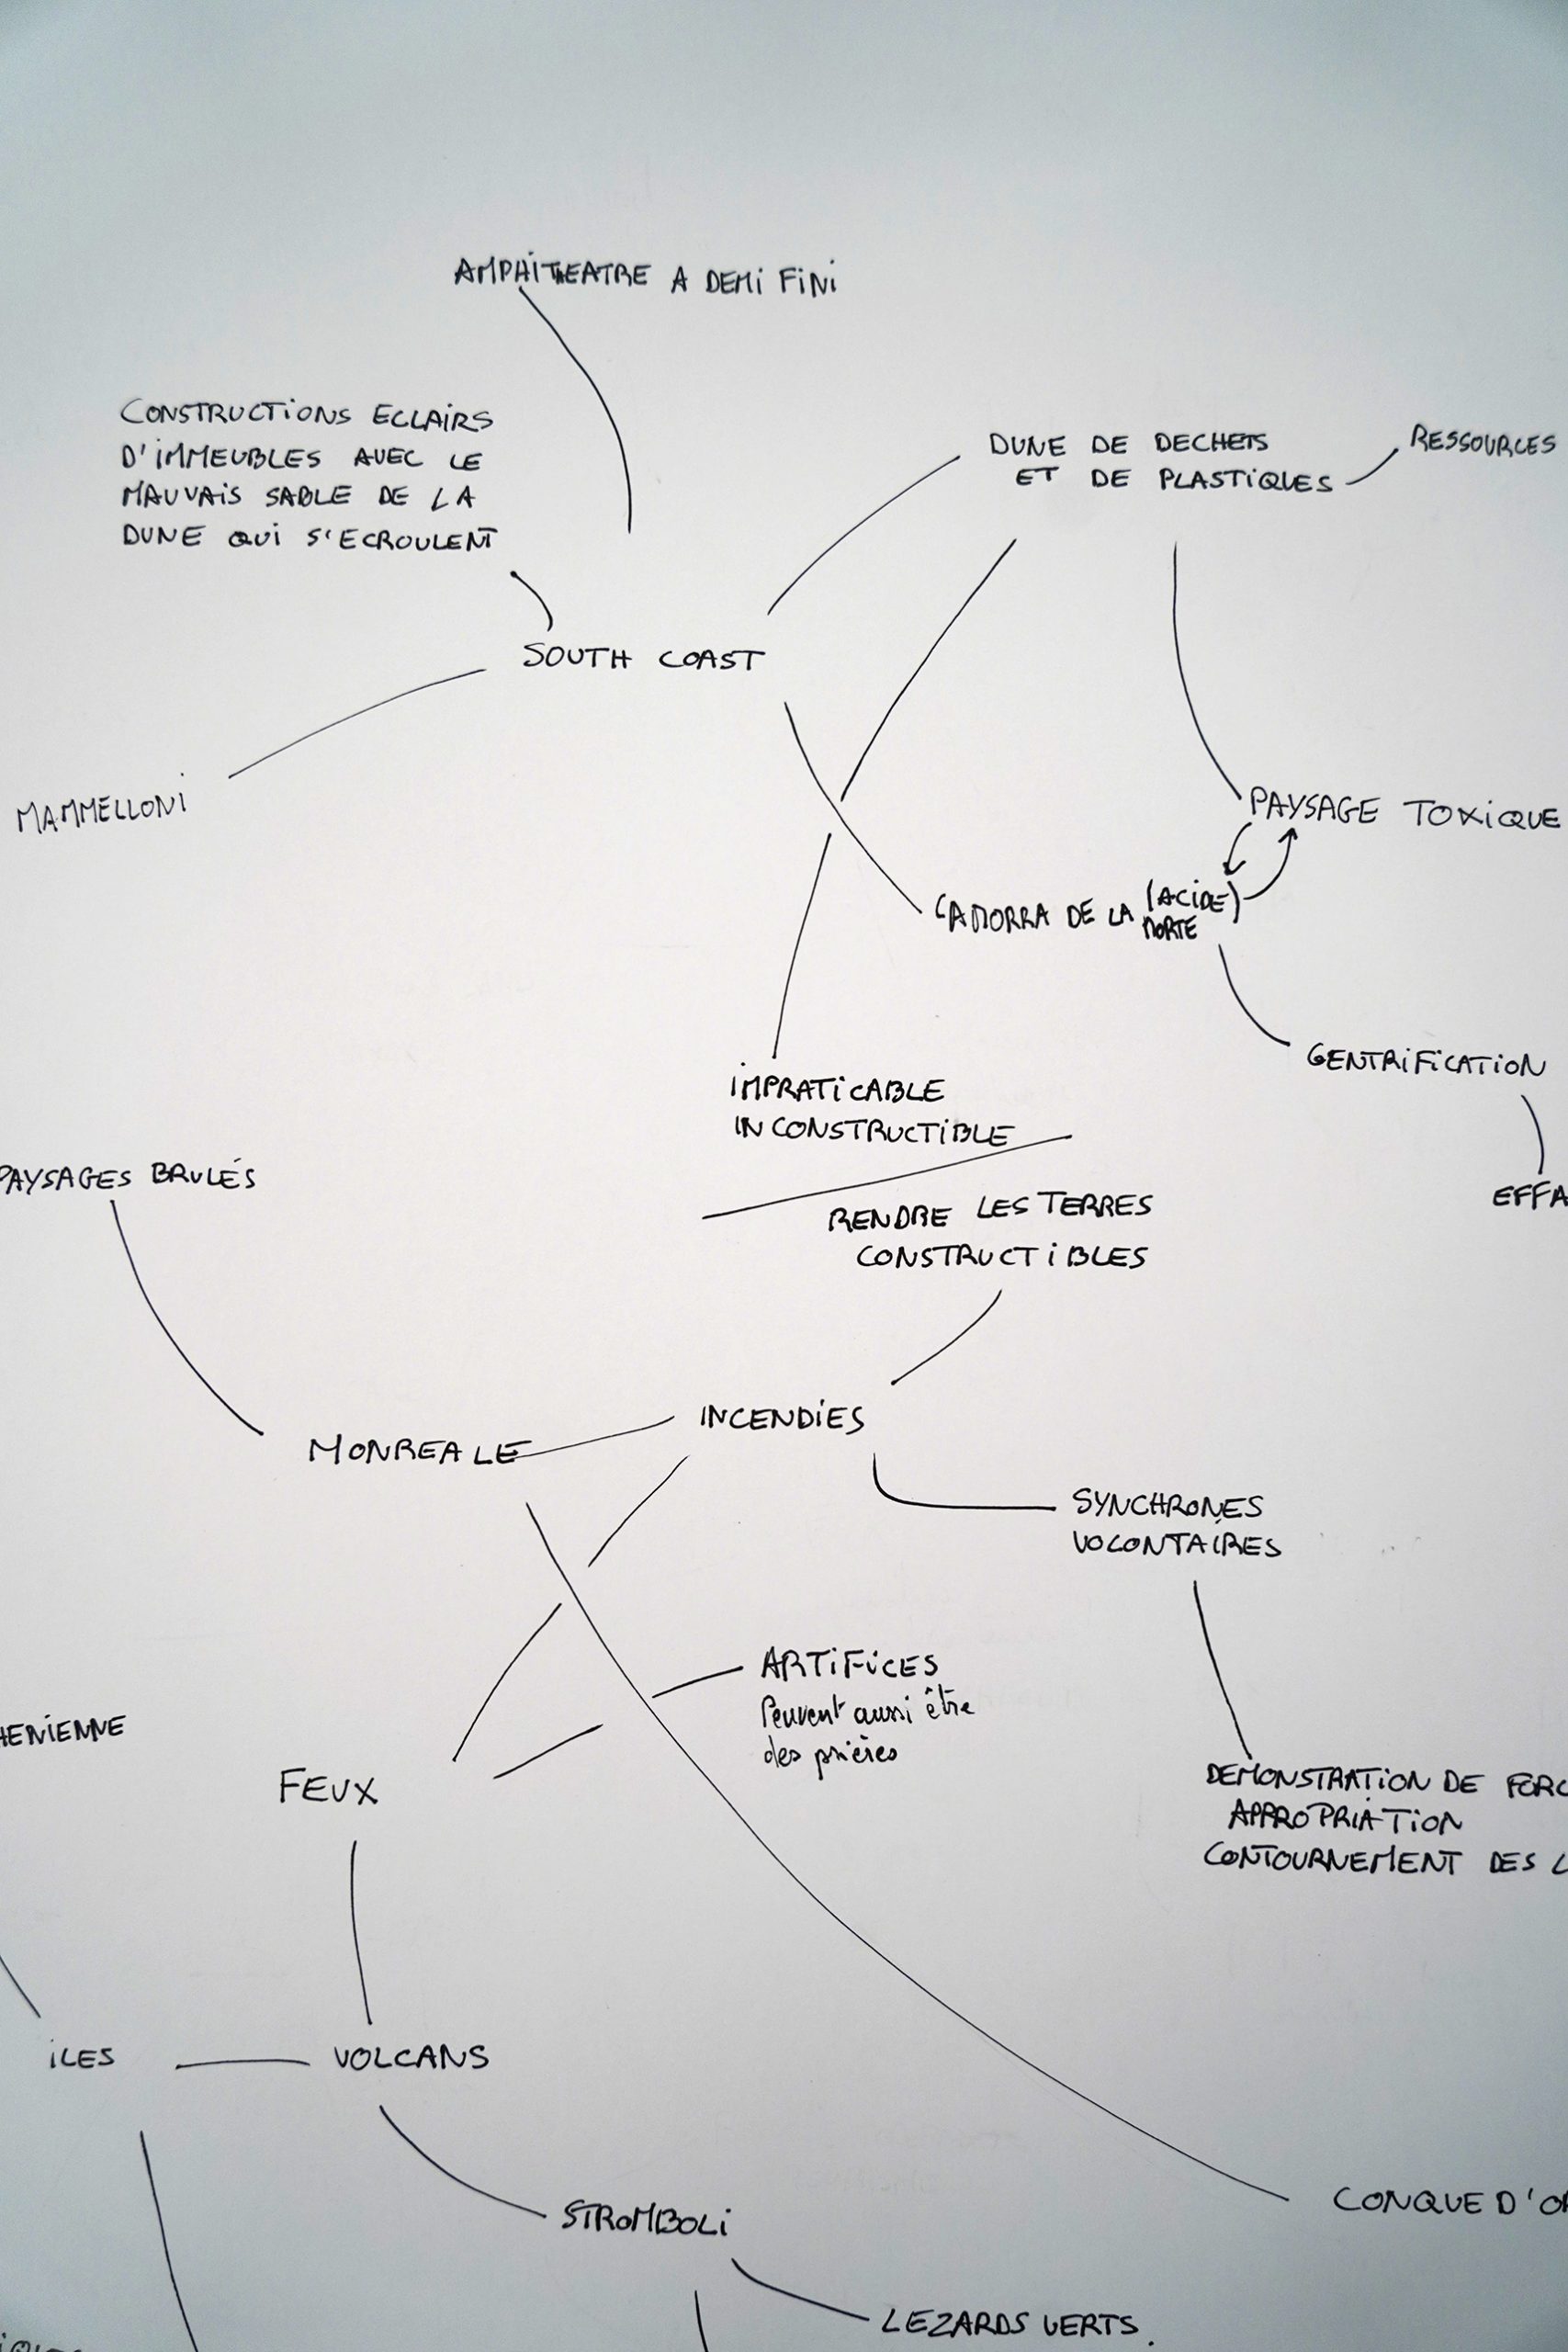 AMPHITHEATRE A DEMI FINI
CONSTRUCTIONS ECLAIRS
D'IMMEUBLES AVEC LE
MAUVAIS SABLE DE LA
DUNE QUI S'ECROULENT
DUNE DE DECHETS
ET DE PLASTIQUES
RESSOURCES
SOUTH COAST
MAMMELLONI
PAYSAGE TOXIQUE
CAMORRA DE LA (ACIDE)
MORTE
GENTRIFICATION
IMPRATICABLE
INCONSTRUCTIBLE
PAYSAGES BRULÉS
EFFA
RENDRE LES TERRES
CONSTRUCTIBLES
INCENDIES
MONREALE
SYNCHRONES
VOLONTAIRES
ARTIFICES
Peuvent aussi être
des prières
HENIENNE
FEUX
DEMONSTRATION DE FORC
APPROPRIATION
CONTOURNEMENT DES L
ILES
VOLCANS
CONQUE D'OR
STROMBOLI
LEZARDS VERTS.